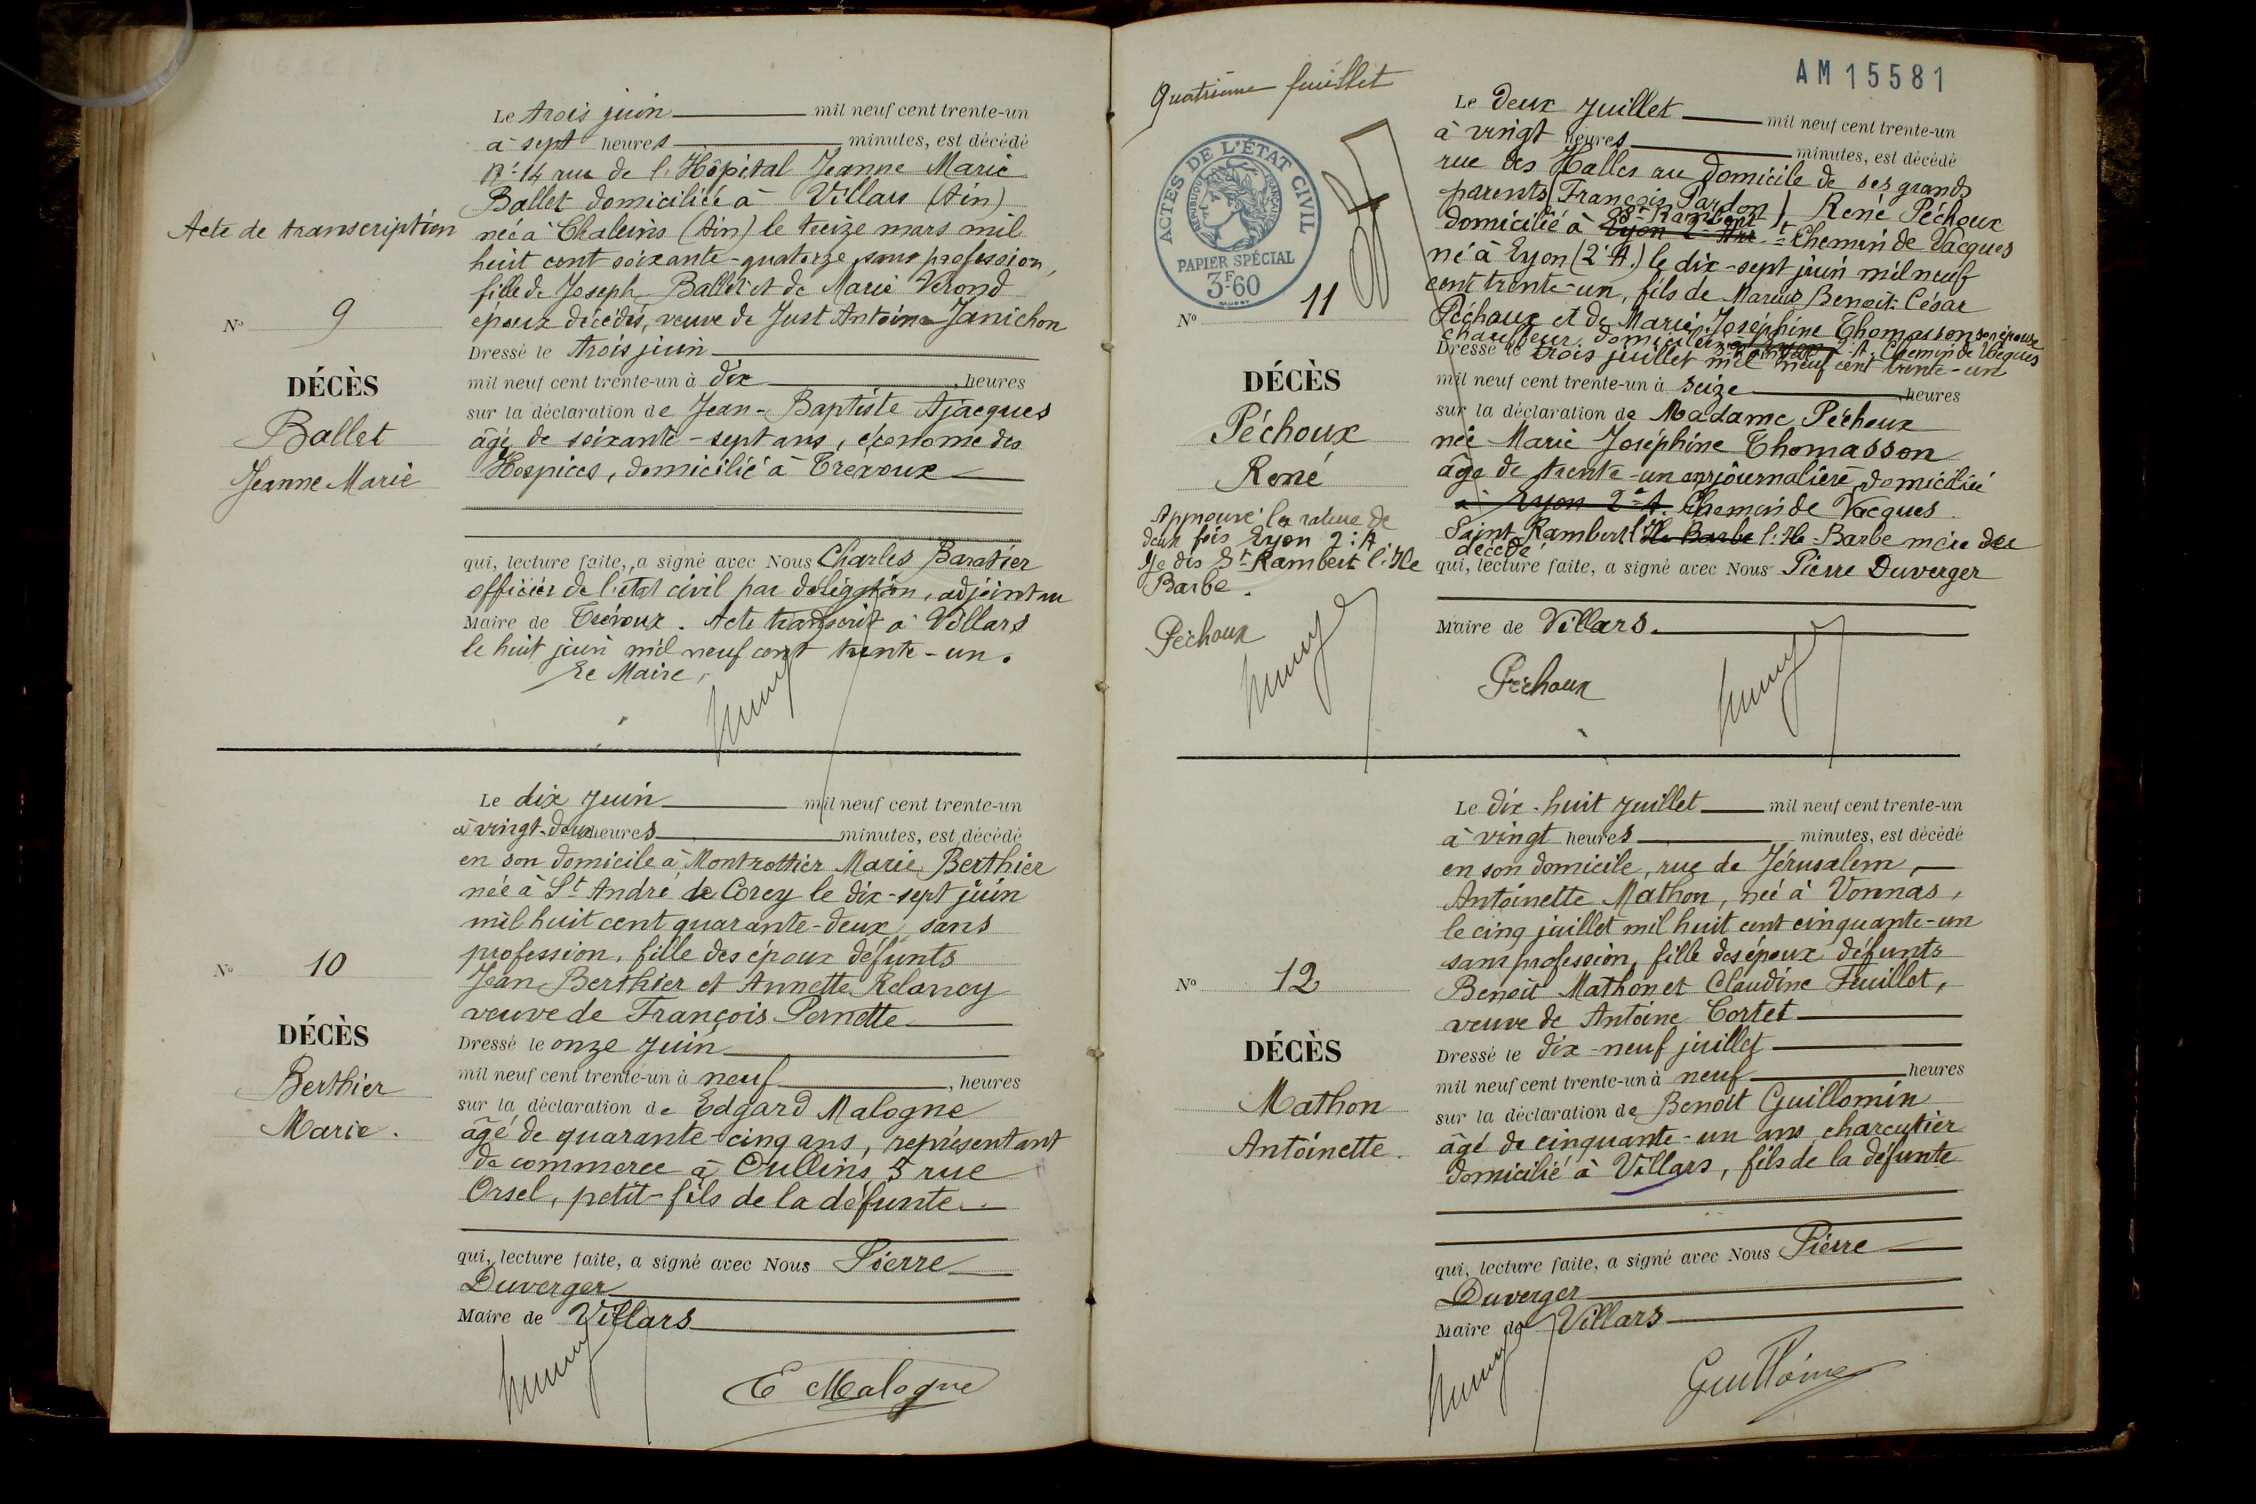 Le trois juin mil neuf cent trente-un
à sept heures minutes, est décédé
Nº 14 rue de l'Hôpital Jeanne Marie
Ballet domiciliée à Villars (Ain)
Acte de transcription
née à Chaleins (Ain) le treize mars mil
huit cent soixante-quatorze, sans profession,
fille de Joseph Ballet et de Marie Verond
Nº 9
époux décédés, veuve de Just Antoine Janichon
Dressé le trois juin
DÉCÈS
Ballet
Jeanne Marie
mil neuf cent trente-un à dix, heures
sur la déclaration de Jean-Baptiste Ajacques
âgé de soixante-sept ans, économe des
Hospices, domicilié à Trévoux
qui, lecture faite, a signé avec Nous Charles Baratier
officier de l'état civil par délégation, adjoint au
Maire de Trévoux. Acte transcrit à Villars
le huit juin mil neuf cent trente-un.
Le Maire,
Le dix juin mil neuf cent trente-un
à vingt-deux heures minutes, est décédé
en son domicile à Montrottier Marie Berthier
née à St André de Corcy le dix-sept juin
mil huit cent quarante-deux, sans
profession, fille des époux défunts
Nº 10
Jean Berthier et Annette Relancy
veuve de François Pernette
DÉCÈS
Berthier
Marie.
Dressé le onze juin
mil neuf cent trente-un à neuf, heures
sur la déclaration de Edgard Malogne
âgé de quarante-cinq ans, représentant
de commerce à Oullins, 5 rue
Orsel, petit-fils de la défunte
qui, lecture faite, a signé avec Nous Pierre
Duverger
Maire de Villars
E Malogne
AM 15581
Quatrième feuillet
ACTES DE L'ÉTAT CIVIL
RÉPUBLIQUE FRANÇAISE
PAPIER SPÉCIAL
3F60
Le deux juillet mil neuf cent trente-un
à vingt heures minutes, est décédé
rue des Halles au domicile de ses grands
parents (François Pardon) René Péchoux
St Rambert
domicilié à Lyon 2e Art Chemin de Vacques
né à Lyon (2e A.) le dix-sept juin mil neuf
cent trente-un, fils de Marius Benoit César
Nº 11
Péchoux et de Marie Joséphine Thomasson son épouse
chauffeur, domiciliés à Lyon 2e A. Chemin de Vacques
Dressé le trois juillet mil neuf cent trente-un
DÉCÈS
Péchoux
René
mil neuf cent trente-un à seize heures
sur la déclaration de Madame Péchoux
née Marie Joséphine Thomasson
âgé de trente-un ans journalière, domiciliée
à Lyon 2e A. Chemin de Vacques
Saint Rambert l'Ile Barbe l'Ile-Barbe mère du
décédé
qui, lecture faite, a signé avec Nous Pierre Duverger
Maire de Villars.
Approuvé la rature de
deux fois Lyon 2e A
Je dis St Rambert l'Ile
Barbe.
Péchoux
Péchoux
Le dix-huit juillet mil neuf cent trente-un
à vingt heures minutes, est décédé
en son domicile, rue de Jérusalem,
Antoinette Mathon, née à Vonnas,
le cinq juillet mil huit cent cinquante-un
sans profession, fille des époux défunts
Nº 12
Benoît Mathon et Claudine Feuillet,
veuve de Antoine Cortet
DÉCÈS
Mathon
Antoinette.
Dressé le dix-neuf juillet
mil neuf cent trente-un à neuf heures
sur la déclaration de Benoît Guillomin
âgé de cinquante-un ans charcutier
domicilié à Villars, fils de la défunte
qui, lecture faite, a signé avec Nous Pierre
Duverger
Maire de Villars